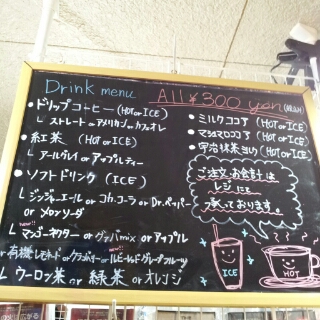 Drink menu
All ¥300 yen (税込)
●ドリップコーヒー (HOT or ICE)
└ ストレート or アメリカン or カフェオレ
●紅茶 (Hot or ICE)
└ アールグレイ or アップルティー
●ソフトドリンク (ICE)
└ ジンジャーエール or コカ・コーラ or Dr.ペパー
or メロンソーダ
└ マンゴーネクター or グァバmix or アップル
or 有機レモネード or クランベリー or ルビーレッドグレープフルーツ
└ ウーロン茶 or 緑茶 or オレンジ
●ミルクココア (HOT or ICE)
●マシュマロココア (HOT or ICE)
●宇治抹茶ミルク (Hot or ICE)
ご注文、お会計は
レジにて
承っております。
ICE
HOT